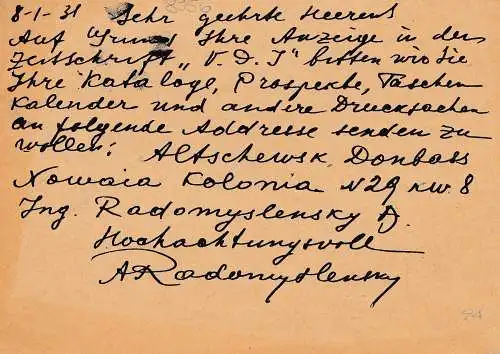 8-1-31 Sehr geehrte Heeren!
8956
Auf Grund Ihre Anzeige in der
Zeitschrift „V. D. I" bitten wir Sie
Ihre Kataloge, Prospekte, Taschen
Kalender und andere Drucksachen
an folgende Addresse senden zu
wollen: Altschewsk, Donbass
Nowaia Kolonia N29 kw. 8
Ing. Radomyslensky A.
Hochachtungsvoll
ARadomyslensky